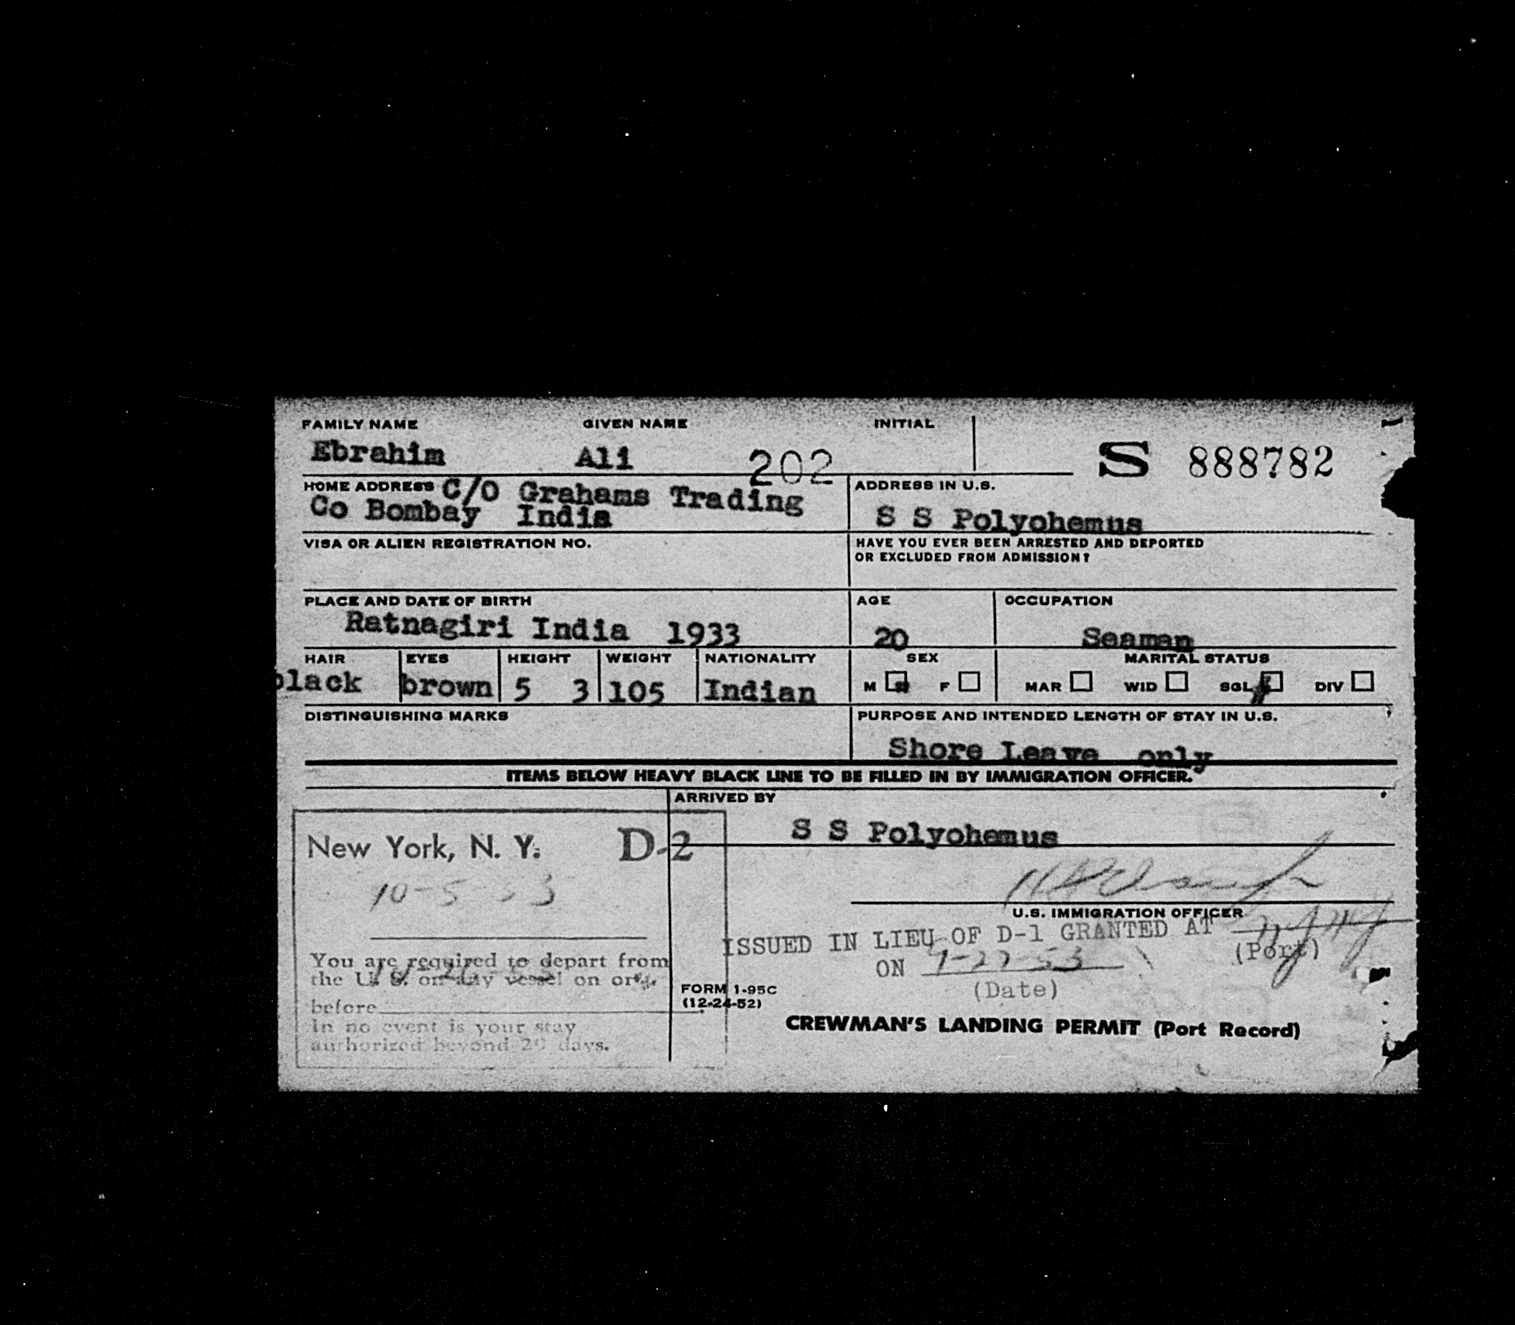 FAMILY NAME GIVEN NAME INITIAL
Ebrahim Ali 202 S 888782
HOME ADDRESS C/O Grahams Trading
Co Bombay India
ADDRESS IN U.S.
S S Polyohemus
VISA OR ALIEN REGISTRATION NO.
HAVE YOU EVER BEEN ARRESTED AND DEPORTED
OR EXCLUDED FROM ADMISSION?
PLACE AND DATE OF BIRTH AGE OCCUPATION
Ratnagiri India 1933 20 Seaman
HAIR EYES HEIGHT WEIGHT NATIONALITY SEX MARITAL STATUS
black brown 5 3 105 Indian M F MAR WID SGL DIV
DISTINGUISHING MARKS PURPOSE AND INTENDED LENGTH OF STAY IN U.S.
Shore Leave only
ITEMS BELOW HEAVY BLACK LINE TO BE FILLED IN BY IMMIGRATION OFFICER.
ARRIVED BY
S S Polyohemus
New York, N. Y. D-2
10-5-53
You are required to depart from
the U. S. on any vessel on or
before
In no event is your stay
authorized beyond 29 days.
U.S. IMMIGRATION OFFICER
ISSUED IN LIEU OF D-1 GRANTED AT
(Port)
ON 9-27-53
(Date)
FORM I-95C
(12-24-52)
CREWMAN'S LANDING PERMIT (Port Record)